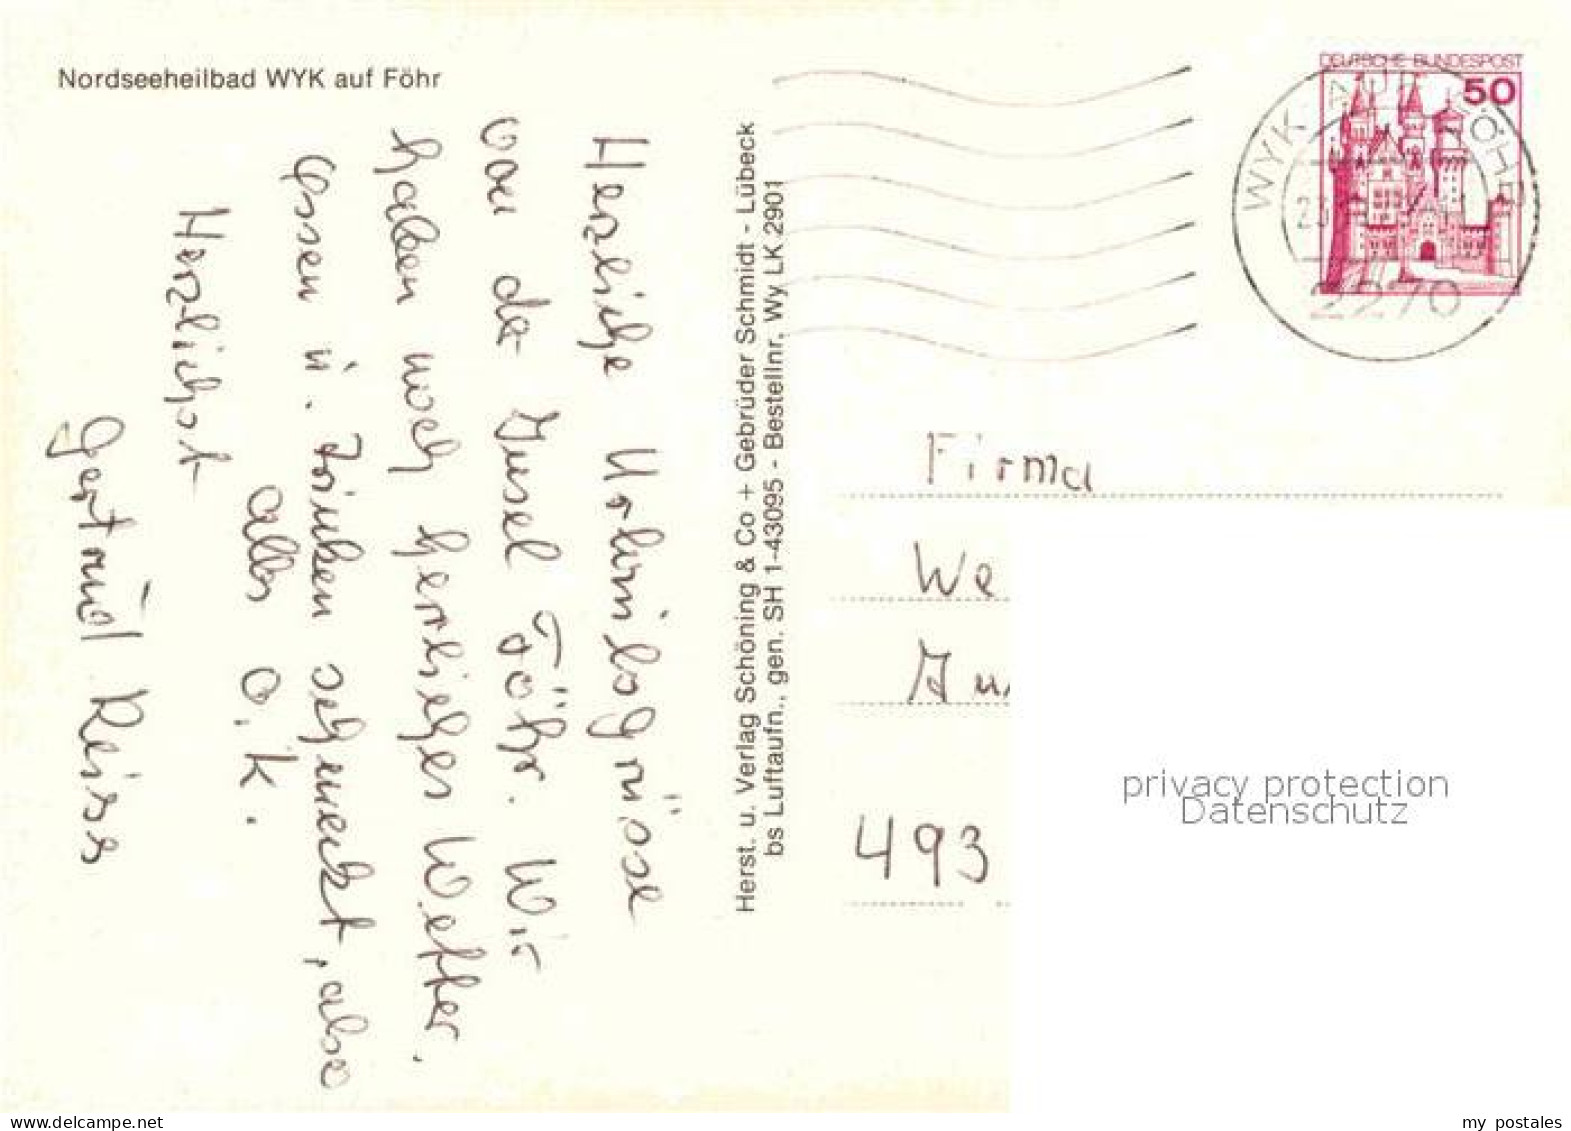 Nordseeheilbad WYK auf Föhr
Herzliche Urlaubsgrüsse
von der Insel Föhr. Wir
haben noch herrliches Wetter.
Essen u. Trinken schmeckt, also
alles o.k.
Herzlichst
Gertrud Reiss
Herst. u. Verlag Schöning & Co + Gebrüder Schmidt - Lübeck
bs Luftaufn., gen. SH 1-43095 - Bestellnr. Wy LK 2901
DEUTSCHE BUNDESPOST
50
WYK AUF FÖHR
2270
Firma
We
493
privacy protection
Datenschutz
www.delcampe.net
my_postales